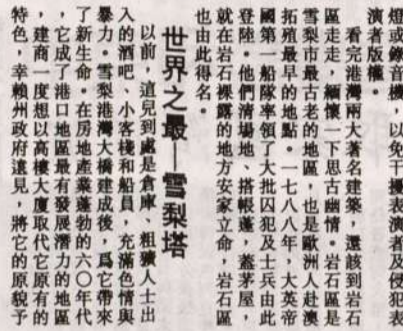 燈或錄音機，以免干擾表演者及侵犯表
演者版權。
看完港灣兩大著名建築，還該到岩石
區走走，緬懷一下思古幽情。岩石區是
雪梨市最古老的地區，也是歐洲人赴澳
拓殖最早的地點。一七八八年，大英帝
國第一船隊率領了大批囚犯及士兵由此
登陸。他們清場地、搭帳蓬，蓋茅屋，
就在岩石裸露的地方安家立命，岩石區
也由此得名。
世界之最—雪梨塔
以前，這兒到處是倉庫、粗獷人士出
入的酒吧、小客棧和船員，充滿色情與
暴力。雪梨港灣大橋建成後，爲它帶來
了新生命。在房地產業蓬勃的六〇年代
，它成了港口地區最有發展潛力的地區
，建商一度想以高樓大廈取代它原有的
特色，幸賴州政府遠見，將它的原貌予